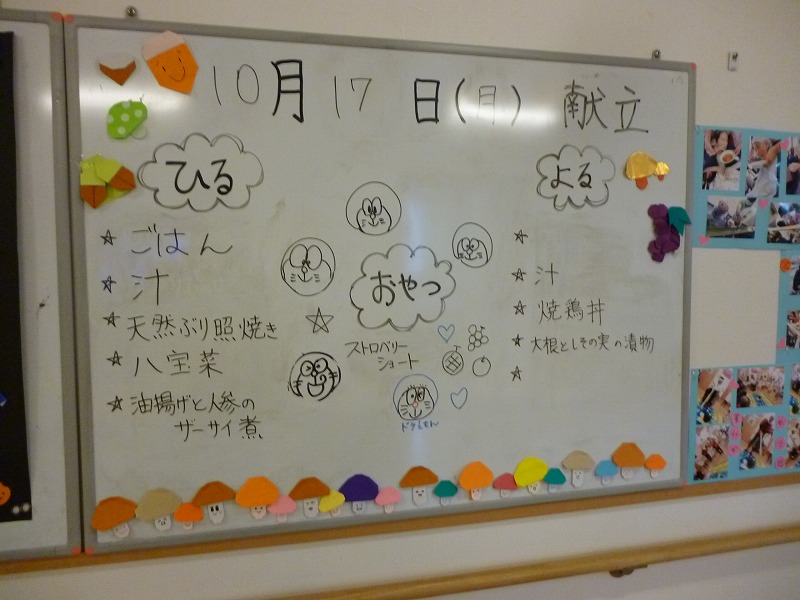 10月 17 日(月) 献立
ひる
☆ ごはん
☆ 汁
☆ 天然ぶり照焼き
☆ 八宝菜
☆ 油揚げと人参の
ザーサイ煮
おやつ
☆ ストロベリー
ショート
ドラえもん
よる
☆
☆ 汁
☆ 焼鶏丼
☆ 大根としその実の漬物
☆